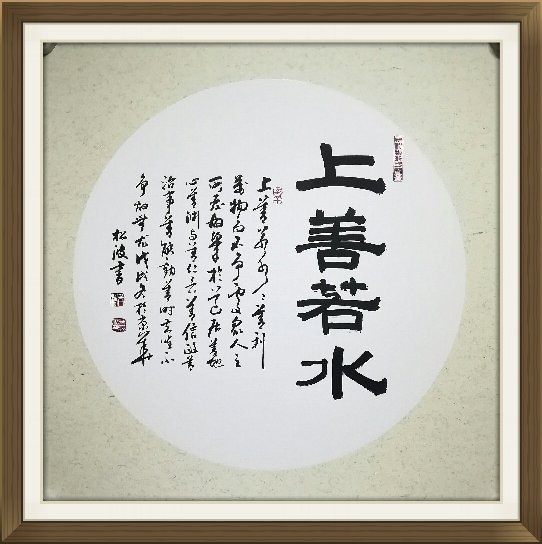 上善若水
上善若水〻善利
萬物而不争處衆人之
所惡故幾於道居善地
心善淵與善仁言善信政善
治事善能動善時夫唯不
争故無尤戊戌冬於京華
松波書